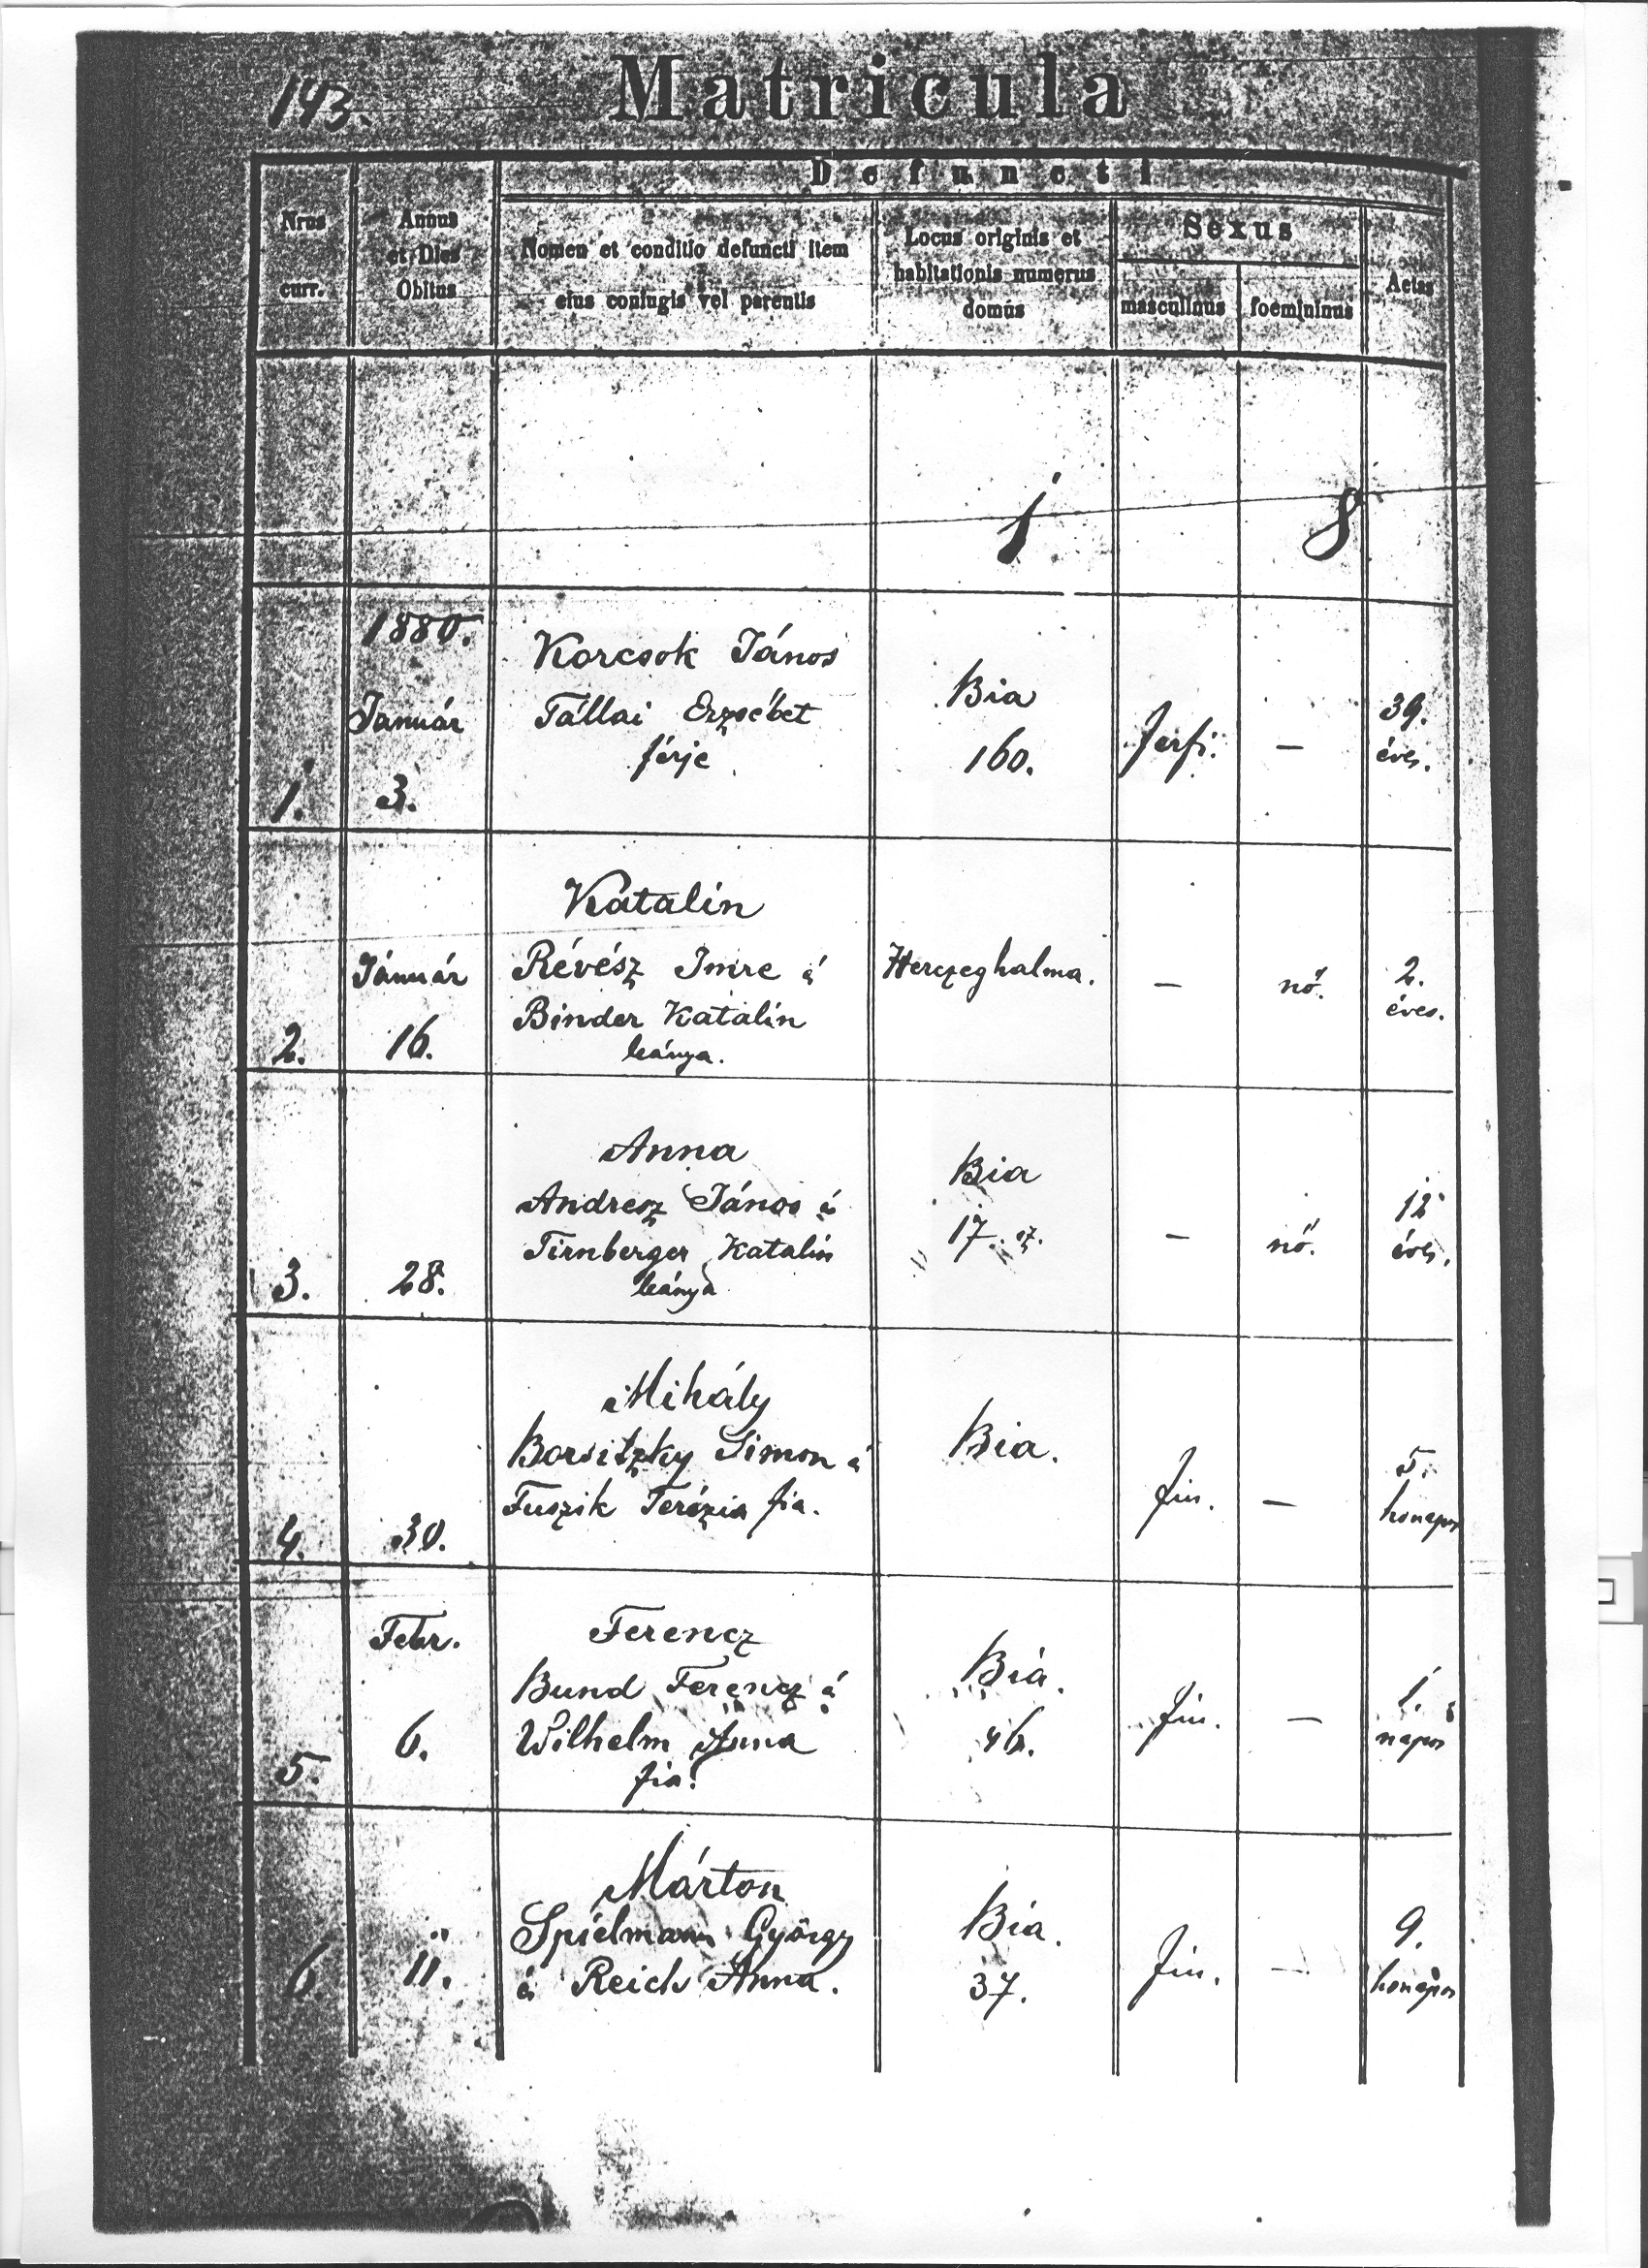 143.
Matricula
Defuncti
Nrus
curr.
Annus
et Dies
Obitus
Nomen et conditio defuncti item
eius coniugis vel parentis
Locus originis et
habitationis numerus
domus
Sexus
masculinus
foemininus
Aetas
1 8
1.
1880.
Január
3.
Korcsok János
Tállai Erzsébet
férje
Bia
160.
férfi.
—
39.
éves.
2.
Január
16.
Katalin
Révész Imre é
Binder Katalin
leánya.
Herczeghalma.
—
nő.
2.
éves.
3.
28.
Anna
Andresz János és
Tirnberger Katalin
leánya
Bia
17. sz.
—
nő.
12
éves.
4.
30.
Mihály
Borsitzky Simon é
Fuszik Terézia fia.
Bia.
fiu.
—
5.
honapos
5.
Febr.
6.
Ferencz
Bund Ferencz é
Wilhelm Anna
fia.
Bia.
46.
fiu.
—
1.
napos
6.
11.
Márton
Spielmann György
és Reich Anna.
Bia.
37.
fiu.
—
9.
honapos